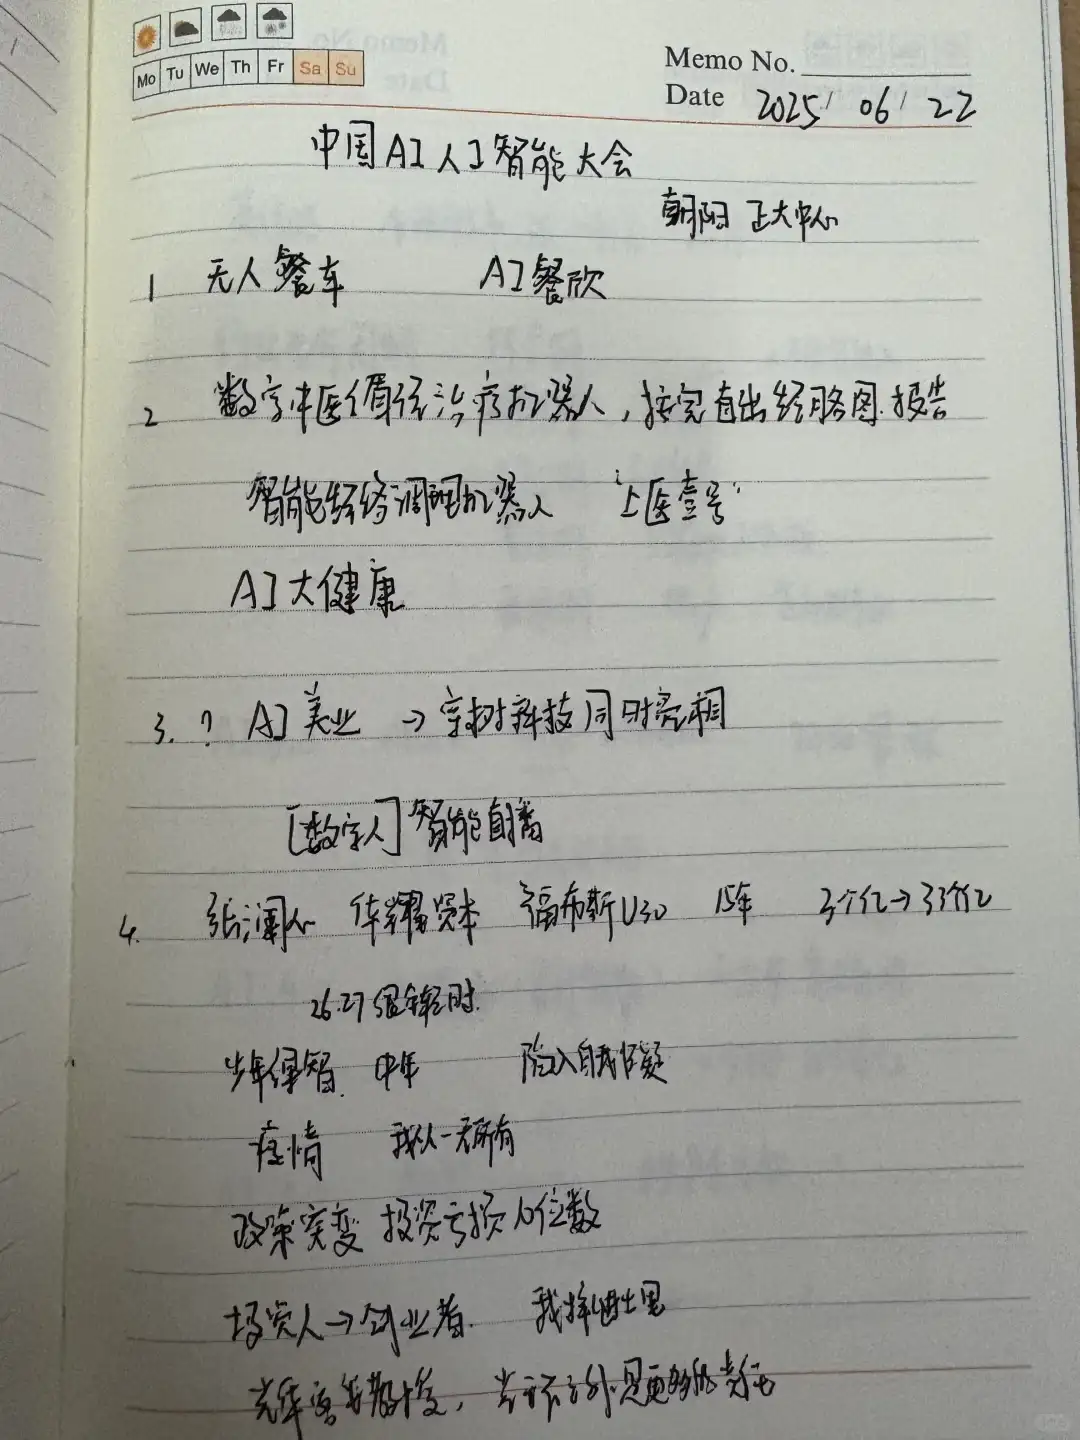 Mo Tu We Th Fr Sa Su
Memo No.
Date 2025/ 06/ 22
中国AI人工智能大会
朝阳 正大中心
1 无人餐车 AI餐饮
2 数字中医循径治疗机器人，按完直出经胳图.报告
智能经络调理机器人 "上医壹号"
AI大健康
3. ? AI美业 → 宇树科技同时亮相
[数字人]智能直播
4. 张澜 华耀资本 福布斯U30 15年 3个亿→33个亿
26.27 年轻时.
少年得智. 中年 陷入自我怀疑
疫情 我从一无所有
政策突变 投资亏损 八位数
投资人→创业者. 我摔进土里
光华